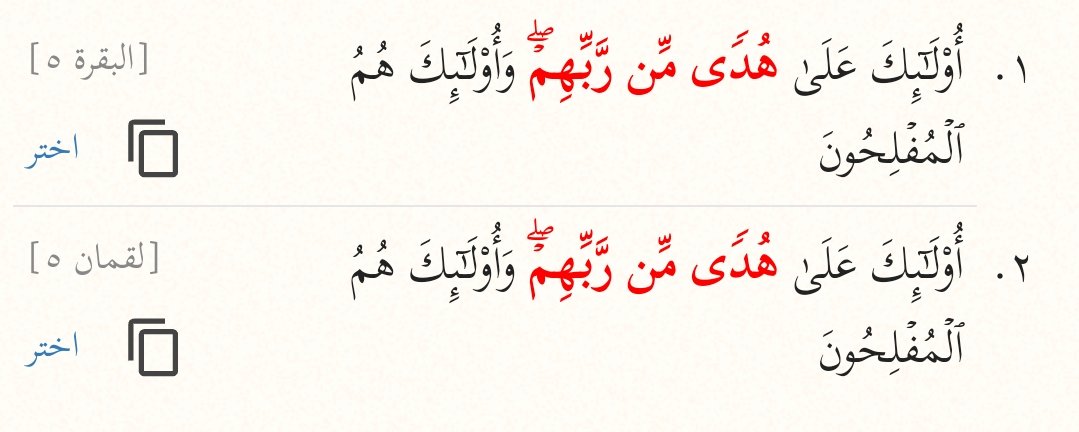 ١. أُوْلَٰٓئِكَ عَلَىٰ هُدًى مِّن رَّبِّهِمْۖ وَأُوْلَٰٓئِكَ هُمُ [البقرة ٥]
ٱلْمُفْلِحُونَ اختر
٢. أُوْلَٰٓئِكَ عَلَىٰ هُدًى مِّن رَّبِّهِمْۖ وَأُوْلَٰٓئِكَ هُمُ [لقمان ٥]
ٱلْمُفْلِحُونَ اختر